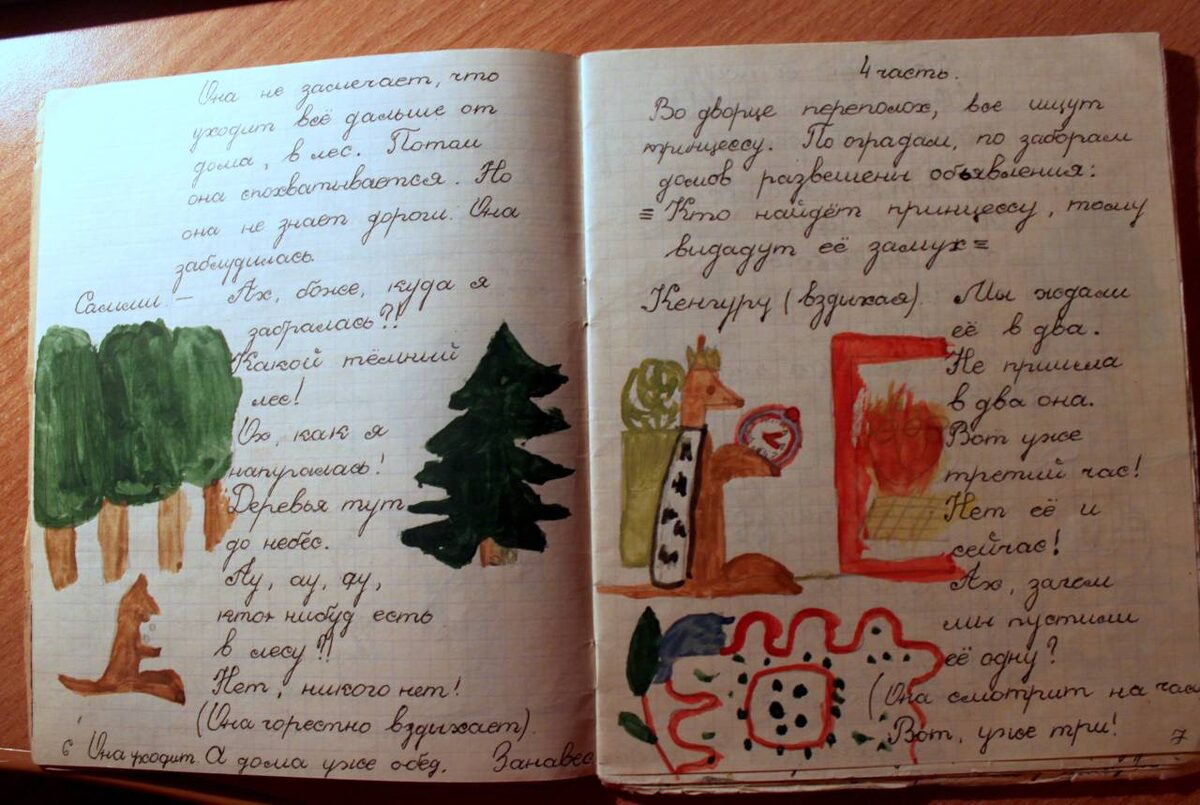 Она не замечает, что
уходит всё дальше от
дома, в лес. Потом
она спохватывается. Но
не знает дороги. Она
заблудилась.
Самми — Ах, боже, куда я
забралась?!
Какой тёмный
лес!
Ох, как я
напугалась!
Деревья тут
до небес.
Ау, ау, ау,
кто-нибуд есть
в лесу?!
Нет, никого нет!
(Она горестно вздыхает).
6 Она уходит. А дома уже обед. Занавес
4 часть.
Во дворце переполох, все ищут
принцессу. По оградам, по заборам
домов развешены объявления:
≡ Кто найдёт принцессу, тому
видадут её замуж =
Кенгуру (вздихая). Мы ждали
её в два.
Не пришла
в два она.
Вот уже
третий час!
Нет её и
сейчас!
Ах, зачем
мы пустили
её одну?
(Она смотрит на час
Вот, уже три!
7